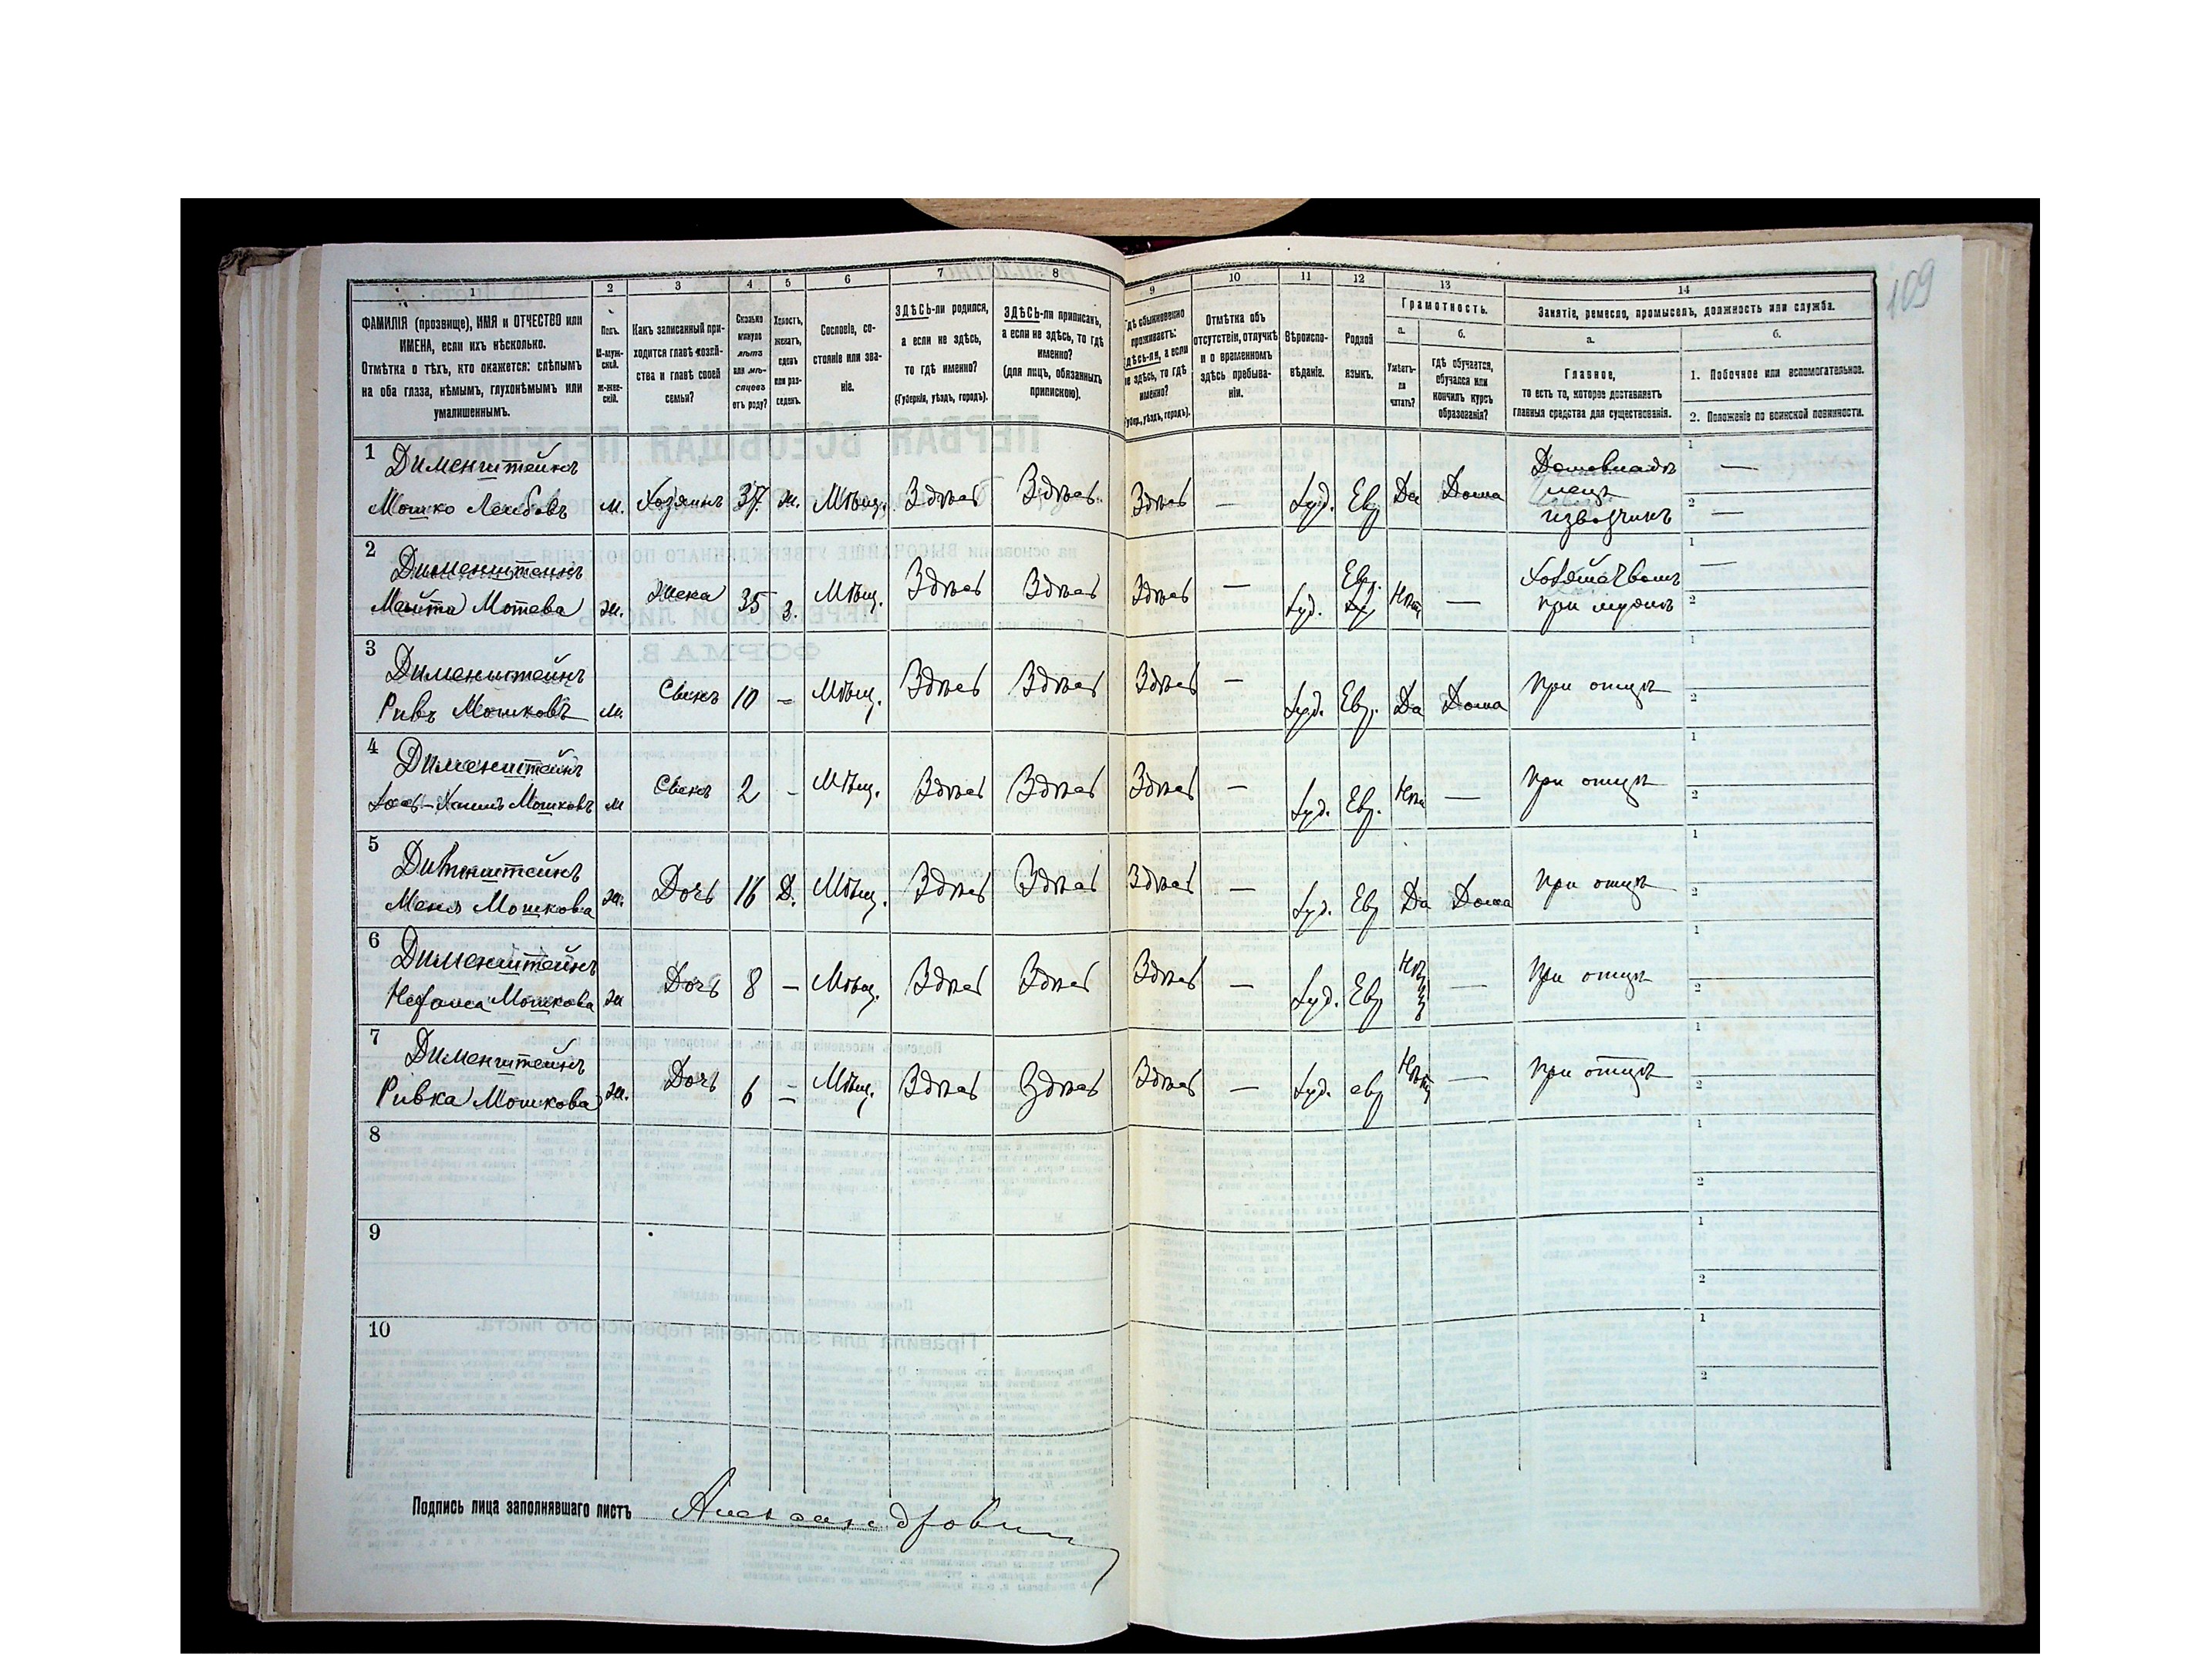 109
1 2 3 4 5 6 7 8 9 10 11 12 13 14
ФАМИЛІЯ (прозвище), ИМЯ и ОТЧЕСТВО или ИМЕНА, если ихъ нѣсколько.
Отмѣтка о тѣхъ, кто окажется: слѣпымъ на оба глаза, нѣмымъ, глухонѣмымъ или умалишеннымъ.
Полъ.
М-мужской.
ж-женскій.
Какъ записанный приходится главѣ хозяйства и главѣ своей семьи?
Сколько минуло лѣтъ или мѣсяцевъ отъ роду?
Холостъ, женатъ, вдовъ или разведенъ.
Сословіе, состояніе или званіе.
ЗДѢСЬ-ли родился, а если не здѣсь, то гдѣ именно?
(Губернія, уѣздъ, городъ).
ЗДѢСЬ-ли приписанъ, а если не здѣсь, то гдѣ именно?
(для лицъ, обязанныхъ припискою).
Гдѣ обыкновенно проживаетъ: здѣсь-ли, а если не здѣсь, то гдѣ именно?
(Губер., уѣздъ, городъ).
Отмѣтка объ отсутствіи, отлучкѣ и о временномъ здѣсь пребываніи.
Вѣроисповѣданіе.
Родной языкъ.
Грамотность.
а.
Умѣетъ-ли читать?
б.
гдѣ обучается, обучался или кончилъ курсъ образованія?
Занятіе, ремесло, промыселъ, должность или служба.
а.
Главное,
то есть то, которое доставляетъ главныя средства для существованія.
б.
1. Побочное или вспомогательное.
2. Положеніе по воинской повинности.
1 Дименштейнъ
Мошко Лейбовъ м. Хозяинъ 37 ж. Мѣщ. Здѣсь Здѣсь Здѣсь — Іуд. Евр Да Дома
извозчикъ
1 —
2 —
2 Дименштейнъ
Мотева ж. Жена 35 З. Мѣщ. Здѣсь Здѣсь Здѣсь — Іуд. Евр. Нѣтъ —
при мужѣ
1 —
2
3 Дименштейнъ
Мошковъ м. Сынъ 10 - Мѣщ. Здѣсь Здѣсь Здѣсь — Іуд. Евр. Да Дома при отцѣ
1
2
4 Дименштейнъ
Мошковъ м Сынъ 2 - Мѣщ. Здѣсь Здѣсь Здѣсь — Іуд. Евр. Нѣтъ — при отцѣ
1
2
5 Дименштейнъ
Меня Мошкова ж. Дочь 16 Д. Мѣщ. Здѣсь Здѣсь Здѣсь — Іуд. Евр Да Дома при отцѣ
1
2
6 Дименштейнъ
Нехама Мошкова ж Дочь 8 — Мѣщ. Здѣсь Здѣсь Здѣсь — Іуд. Евр Нѣтъ — при отцѣ
1
2
7 Дименштейнъ
Ривка Мошкова ж. Дочь 6 — Мѣщ. Здѣсь Здѣсь Здѣсь — Іуд. евр Нѣтъ — при отцѣ
1
2
8
1
2
9
1
2
10
1
2
Подпись лица заполнявшаго листъ